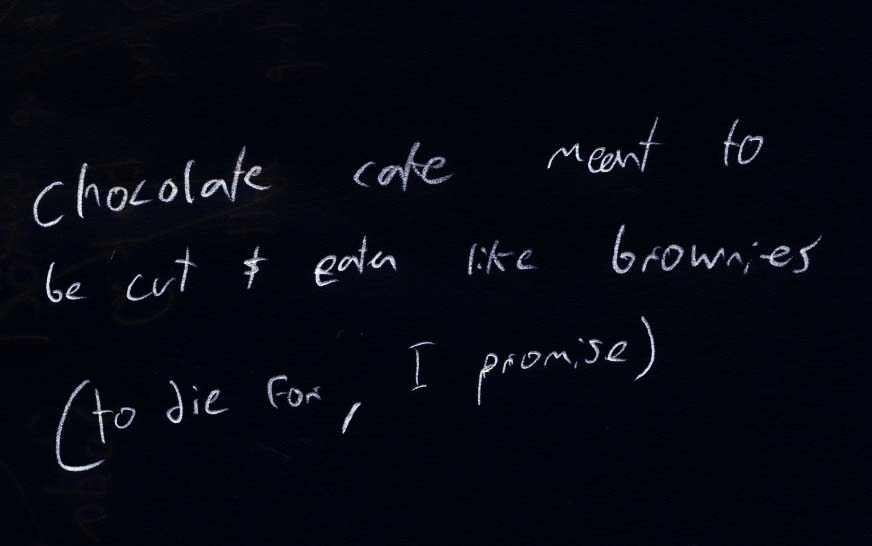 Chocolate cake meant to
be cut & eaten like brownies
(to die for, I promise)